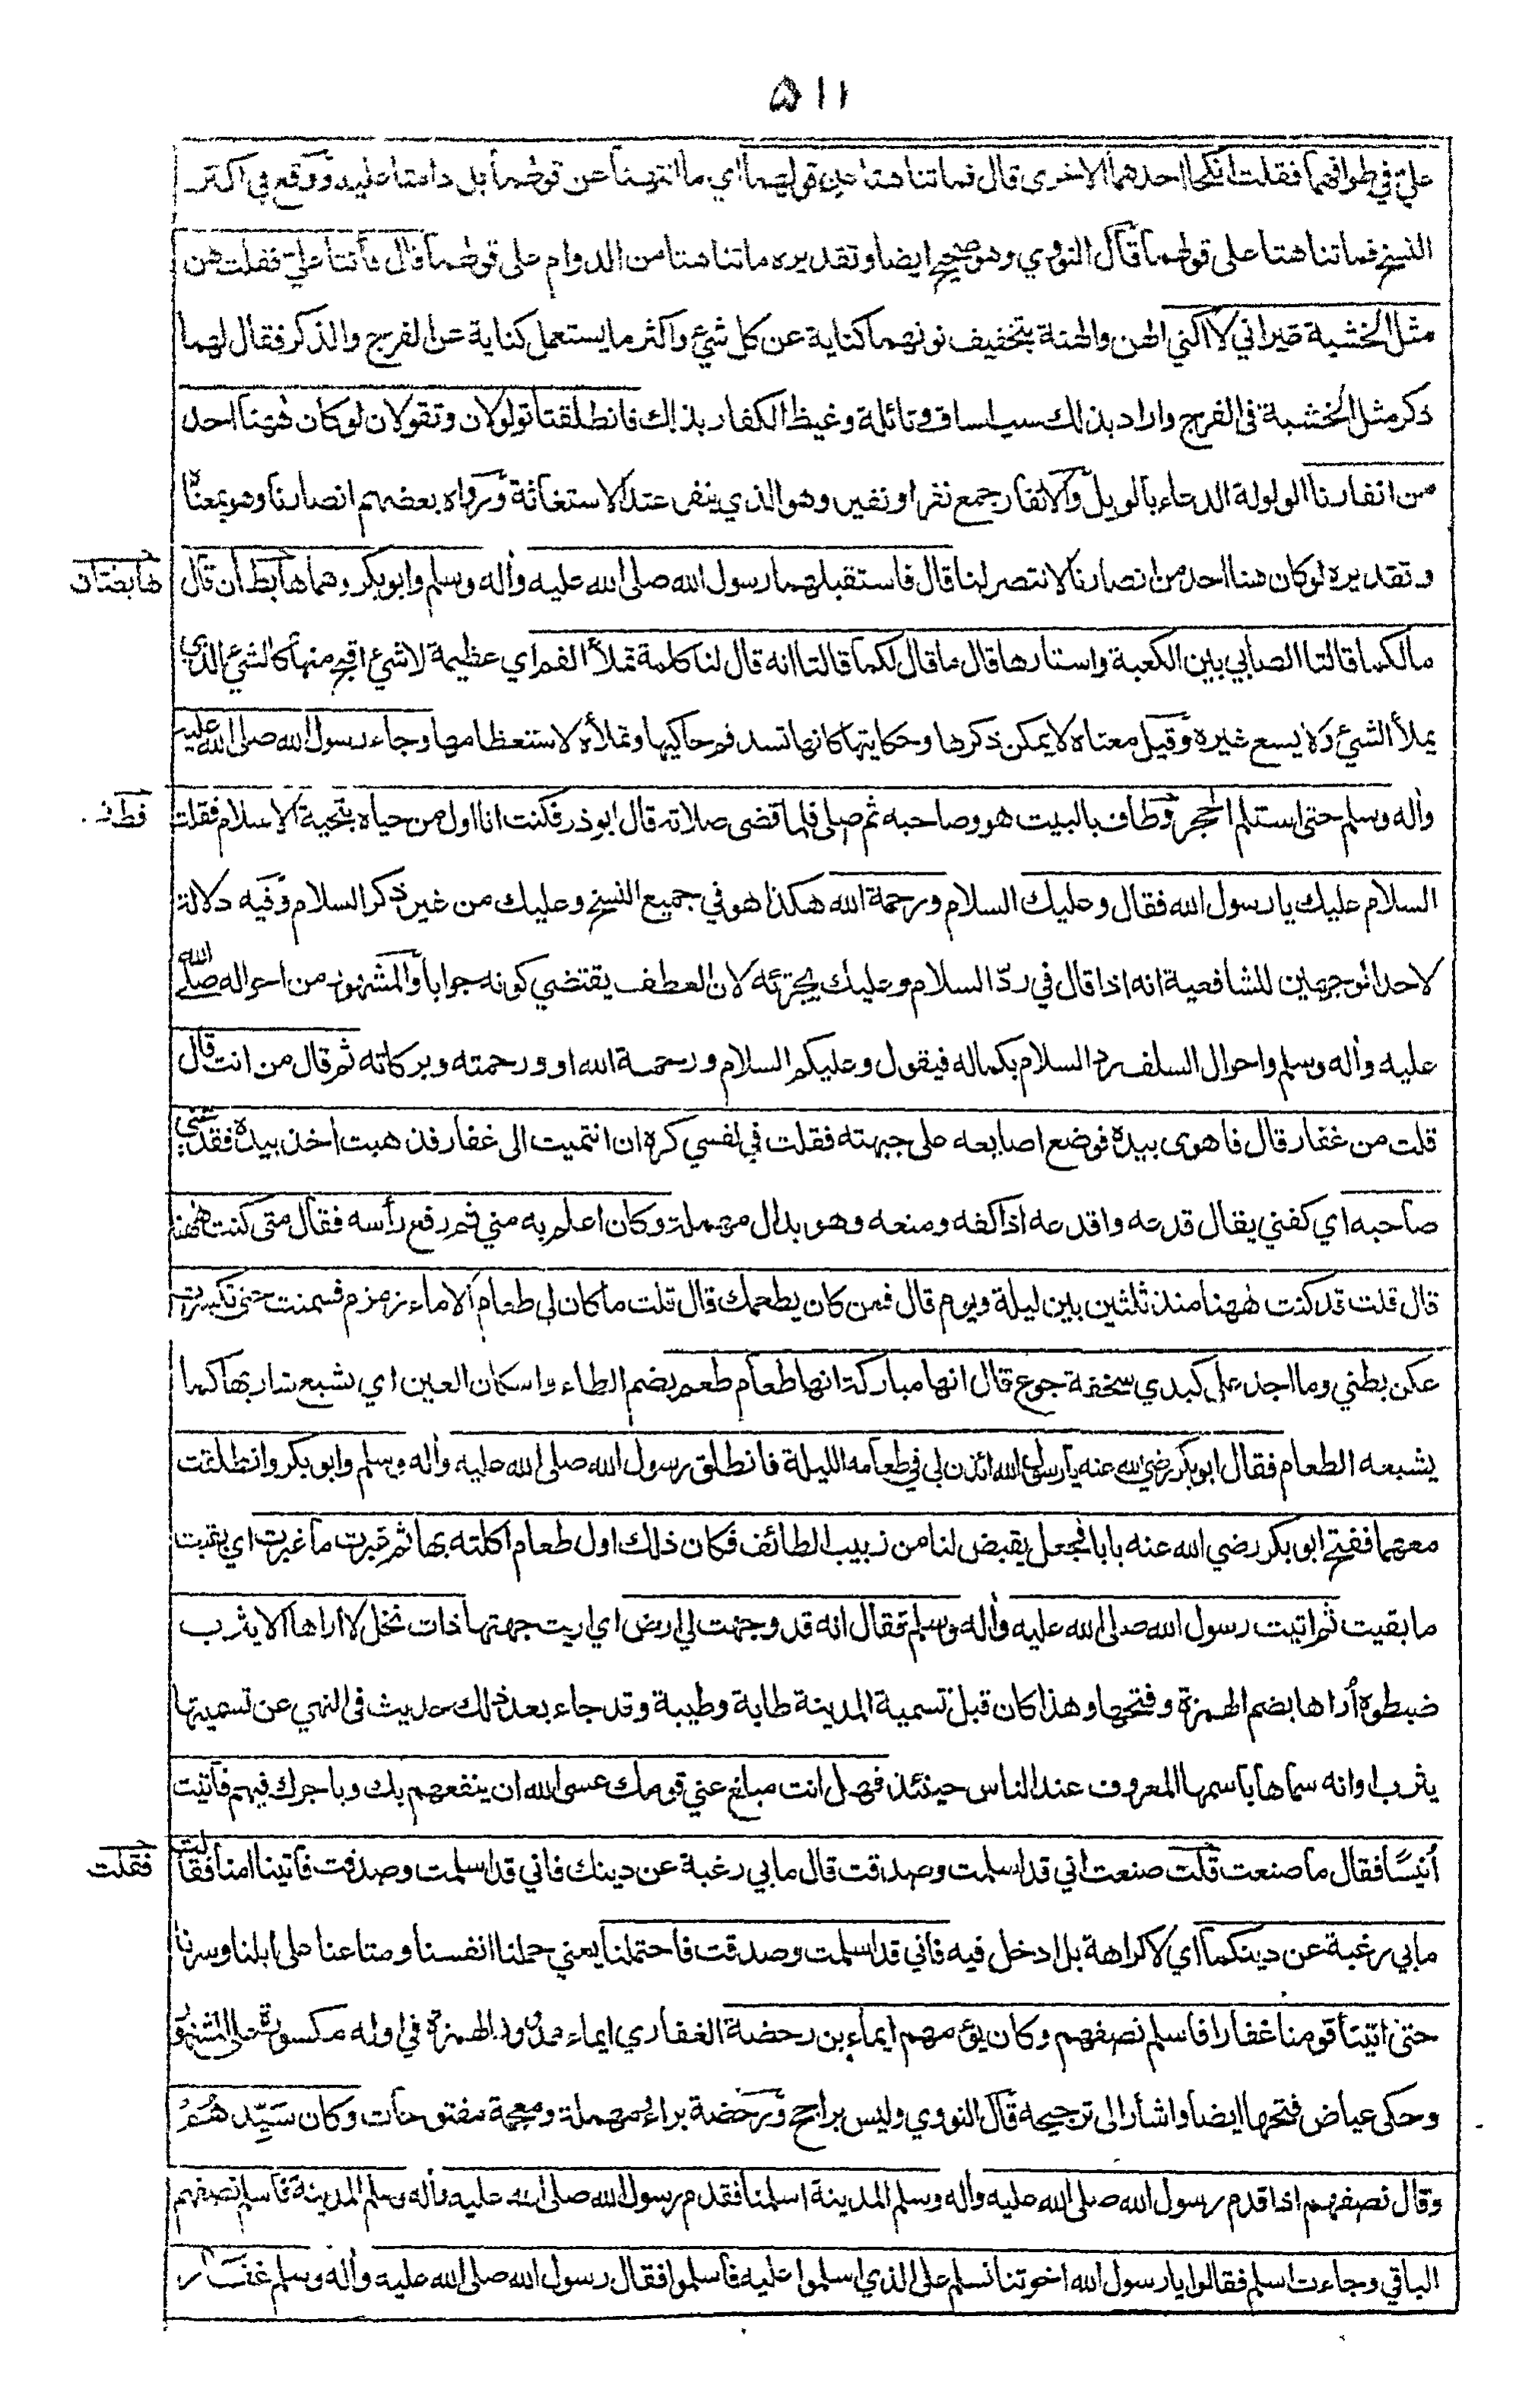 ۵۱۱
علي في طوافهما فقلت انكحا احدهما الاخرى قال فما تناهتا عن قولهما اي ما انتهتا عن قولهما بل دامتا عليه ووقع في اكثر
النسخ فما تناهتا على قولهما قال النووي وهو صحيح ايضا وتقديره ما تناهتا من الدوام على قولهما قال فأتتا علي فقلت هن
مثل الخشبة غير اني لا اكني الهن والهنة بتخفيف نونهما كناية عن كل شيء واكثر ما يستعمل كناية عن الفرج والذكر فقال لهما
ذكر مثل الخشبة في الفرج واراد بذلك سب اساف ونائلة وغيظ الكفار بذلك فانطلقتا تولولان وتقولان لو كان ههنا احد
من انفارنا الولولة الدعاء بالويل والانفار جمع نفر او نفير وهو الذي ينفر عند الاستغاثة ورواه بعضهم انصارنا وهو بمعناه
وتقديره لو كان هنا احد من انصارنا لانتصر لنا قال فاستقبلهما رسول الله صلى الله عليه واله وسلم وابو بكر وهما هابطان قال
هابطتان
مالكما قالتا الصابي بين الكعبة واستارها قال ما قال لكما قالتا انه قال لنا كلمة تملأ الفم اي عظيمة لا شيء اقبح منها كالشيء الذي
يملأ الشيء ولا يسع غيره وقيل معناه لا يمكن ذكرها وحكايتها كانها تسد فم حاكيها وتملأه لاستعظامها وجاء رسول الله صلى الله عليه
واله وسلم حتى استلم الحجر وطاف بالبيت هو وصاحبه ثم صلى فلما قضى صلاته قال ابو ذر فكنت انا اول من حياه بتحية الاسلام فقلت
فطاف
السلام عليك يا رسول الله فقال وعليك السلام ورحمة الله هكذا هو في جميع النسخ وعليك من غير ذكر السلام وفيه دلالة
لاحد الوجهين للشافعية انه اذا قال في ردّ السلام وعليك يجزئه لان العطف يقتضي كونه جوابا والمشهور من احواله صلى الله
عليه واله وسلم واحوال السلف رد السلام بكماله فيقول وعليكم السلام ورحمة الله او ورحمته وبركاته ثم قال من انت قال
قلت من غفار قال فاهوى بيده فوضع اصابعه على جبهته فقلت في نفسي كره ان انتميت الى غفار فذهبت اخذ بيده فقدعني
صاحبه اي كفني يقال قدعه واقدعه اذا كفه ومنعه وهو بدال مهملة وكان اعلم به مني ثم رفع رأسه فقال متى كنت ههنا
قال قلت قد كنت ههنا منذ ثلثين بين ليلة ويوم قال فمن كان يطعمك قال قلت ما كان لي طعام الا ماء زمزم فسمنت حتى تكسرت
عكن بطني وما اجد على كبدي سخفة جوع قال انها مباركة انها طعام طعم بضم الطاء واسكان العين اي تشبع شاربها كما
يشبعه الطعام فقال ابو بكر رضي الله عنه يا رسول الله ائذن لي في طعامه الليلة فانطلق رسول الله صلى الله عليه واله وسلم وابو بكر وانطلقت
معهما ففتح ابو بكر رضي الله عنه بابا فجعل يقبض لنا من زبيب الطائف فكان ذلك اول طعام اكلته بها ثم غبرت ما غبرت اي بقيت
ما بقيت ثم اتيت رسول الله صلى الله عليه واله وسلم فقال انه قد وجهت لي ارض اي اريت جهتها ذات نخل لا اراها الا يثرب
ضبطوه أراها بضم الهمزة وفتحها وهذا كان قبل تسمية المدينة طابة وطيبة وقد جاء بعد ذلك حديث في النهي عن تسميتها
يثرب او انه سماها باسمها المعروف عند الناس حينئذ فهل انت مبلغ عني قومك عسى الله ان ينفعهم بك وباجرك فيهم فأتيت
أنيسًا فقال ما صنعت قلت صنعت اني قد اسلمت وصدقت قال ما بي رغبة عن دينك فاني قد اسلمت وصدقت فأتينا امنا فقالت
فقلت
ما بي رغبة عن دينكما اي لا كراهة بل ادخل فيه فاني قد اسلمت وصدقت فاحتملنا يعني حملنا انفسنا ومتاعنا على ابلنا وسرنا
حتى اتينا قومنا غفارا فاسلم نصفهم وكان يؤمهم ايماء بن رحضة الغفاري ايماء ممدود الهمزة في اوله مكسورة على المشهور
وحكى عياض فتحها ايضا واشار الى ترجيحه قال النووي وليس براجح ورحضة براء مهملة ومعجمة مفتوحات وكان سَيِّدهُمْ
وقال نصفهم اذا قدم رسول الله صلى الله عليه واله وسلم المدينة اسلمنا فقدم رسول الله صلى الله عليه واله وسلم المدينة فاسلم نصفهم
الباقي وجاءت اسلم فقالوا يا رسول الله اخوتنا نسلم على الذي اسلموا عليه فأسلموا فقال رسول الله صلى الله عليه واله وسلم غفار